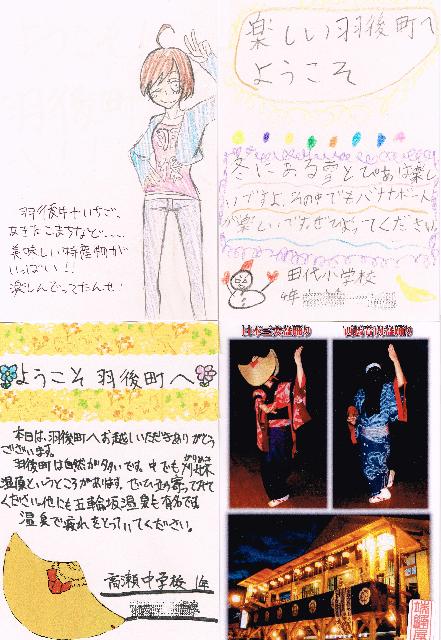 羽後牛やいちご、
あきたこまちなど……
美味しい特産物が
いっぱい!!
楽しんでってたんせ!
楽しい羽後町へ
ようこそ
冬にある雪とぴあは楽し
いですよ。その中でもバナナボート
が楽しいです。ぜひよってください
田代小学校
4年
ようこそ 羽後町へ
本日は、羽後町へお越しいただきありがとう
ございます。
羽後町は自然が多いです。中でも
湿原というところがあります。ぜひ立ち寄ってみて
ください。他にも五輪坂温泉も有名です
温泉で疲れをとっていてください。
高瀬中学校 1年
日本三大盆踊り